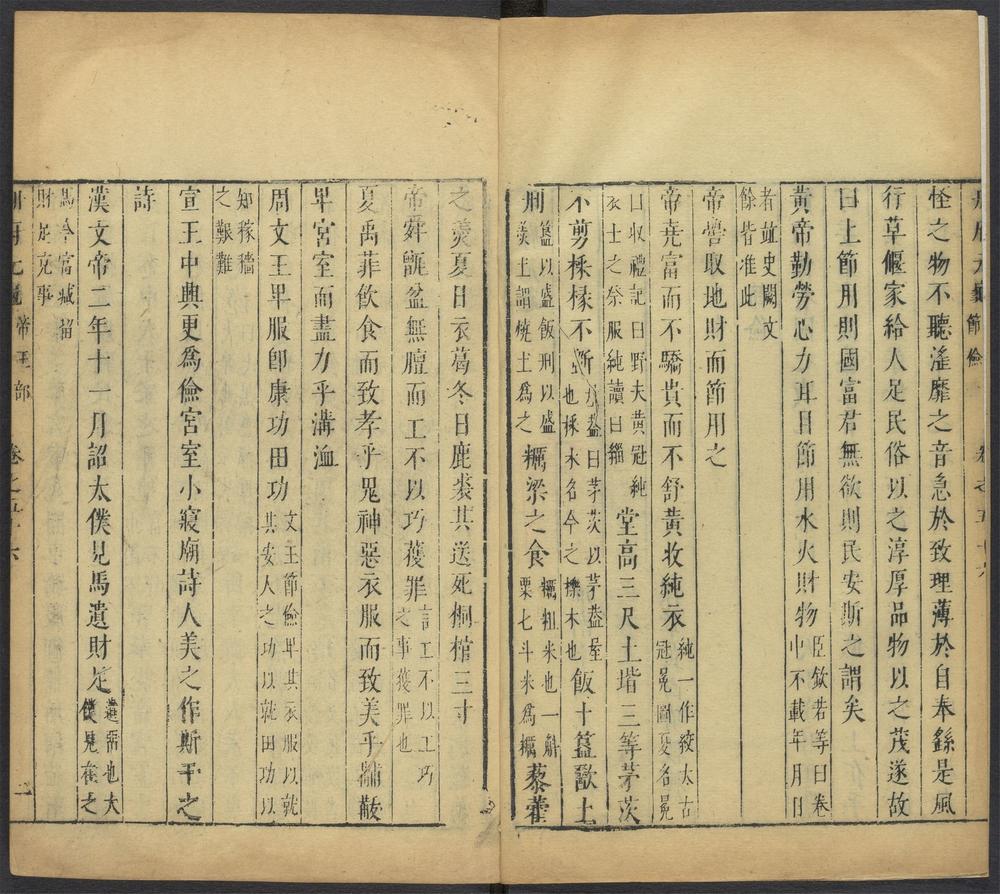 節儉
怪之物不聽滛靡之音急於致理薄於自奉繇是風
行草偃家給人足民俗以之淳厚品物以之茂遂故
曰上節用則國富君無欲則民安斯之謂矣
黃帝勤勞心力耳目節用水火財物臣欽若等曰卷中不載年月日
者竝史闕文餘皆准此
帝嚳取地財而節用之
帝堯富而不驕貴而不舒黃收純衣純一作絞太古冠冕圖夏名冕
曰收禮記曰野夫黃冠純衣士之祭服純讀曰緇堂高三尺土堦三等茅茨
不剪採椽不斲蓋曰茅茨以茅葢屋也採木名今之櫟木也飯十簋歠土
刑簋以盛飯刑以盛羹土謂燒土爲之糲粱之食糲粗米也一斛粟七斗米爲糲藜藿
之羹夏日衣葛冬日鹿裘其送死桐棺三寸
帝舜甑盆無膻而工不以巧獲罪言工不以工巧之事獲罪也
夏禹菲飲食而致孝乎鬼神惡衣服而致美乎黼黻
卑宮室而盡力乎溝洫
周文王卑服卽康功田功文王節儉卑其衣服以就其安人之功以就田功以
知稼穡之艱難
宣王中興更爲儉宮室小寢廟詩人美之作斯干之
詩
漢文帝二年十一月詔太僕見馬遺財足遺畱也太僕見在之
馬今當減畱財足充事
帝王部 卷之五十六 二